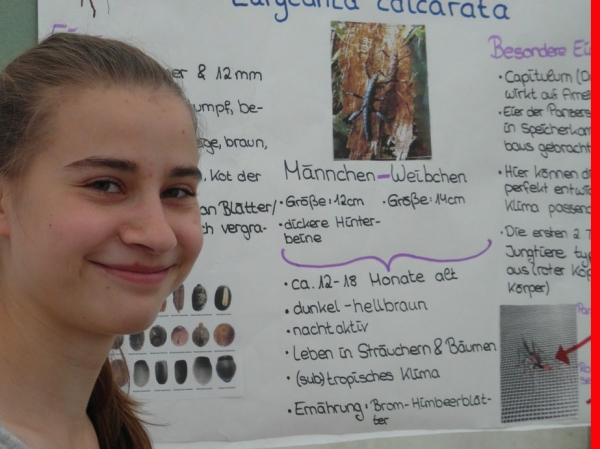 Eurycantha calcarata
er & 12mm
umpf, be-
ge, braun,
. Kot der
an Blätter/
ch vergra-
Männchen-Weibchen
• Größe: 12cm • Größe: 14cm
• dickere Hinter-
beine
• ca. 12-18 Monate alt
• dunkel-hellbraun
• nachtaktiv
• Leben in Sträuchern & Bäumen
• (sub)tropisches Klima
• Ernährung: Brom-Himbeerblät-
ter
Besondere Ei
• Capitulum (D
wirkt auf Amei
• Eier der Panzers
in Speicherkam
baus gebracht
• Hier können di
perfekt entwi
Klima passend
• Die ersten 2 T
Jungtiere typ
aus (roter Kop
Körper)